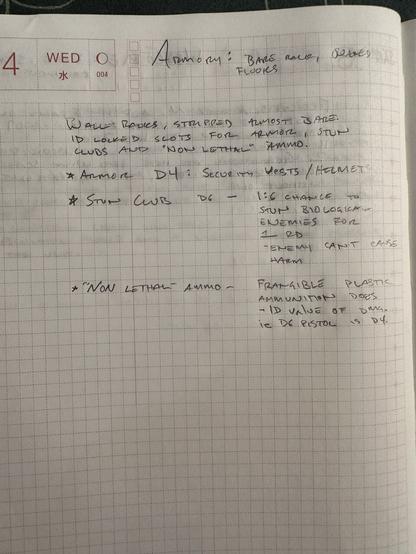 4 WED 水 004
ARMORY: BARE RACK,
FLOORS
WALL RACKS, STRIPPED ALMOST BARE.
ID LOCKED SLOTS FOR ARMOR, STUN
CLUBS AND "NON LETHAL" AMMO.
* ARMOR D4: SECURITY VESTS/HELMETS
* STUN CLUB D6 - 1:6 CHANCE TO
STUN BIOLOGICAL
ENEMIES FOR
1 RD
-ENEMY CAN'T CAUSE
HARM
* "NON LETHAL" AMMO - FRANGIBLE PLASTIC
AMMUNITION DOES
-1D VALUE OF DMG.
ie D6 PISTOL IS D4.